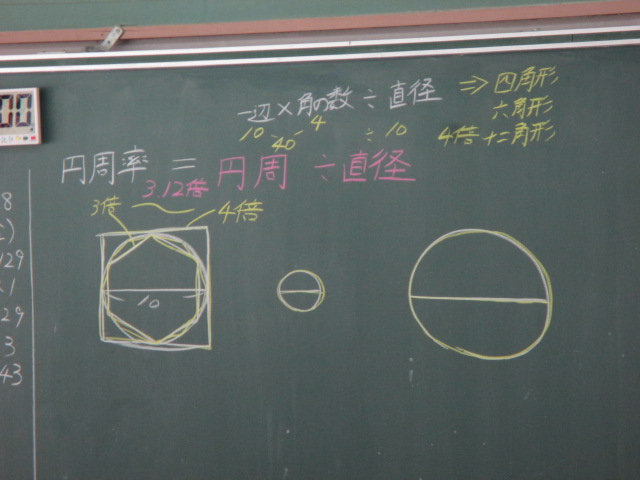 一辺×角の数÷直径 ⇒ 四角形
六角形
10 40 4 ÷10 4倍 十二角形
円周率 = 円周÷直径
3.12倍
3倍 4倍
10
8
129
1
29
3
43